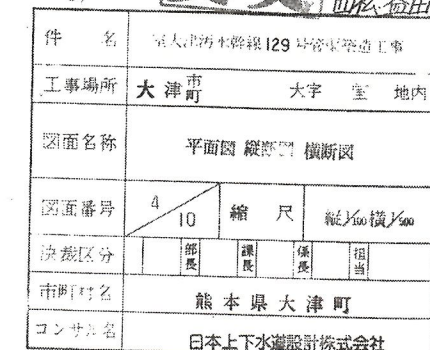 件 名 室大津汚水幹線129号管渠築造工事
工事場所 大津市町 大字 室 地内
図面名称 平面図 縦断図 横断図
図面番号 4/10 縮尺 縦1/100 横1/500
決裁区分 部長 課長 係長 担当
市町村名 熊本県大津町
コンサル名 日本上下水道設計株式会社